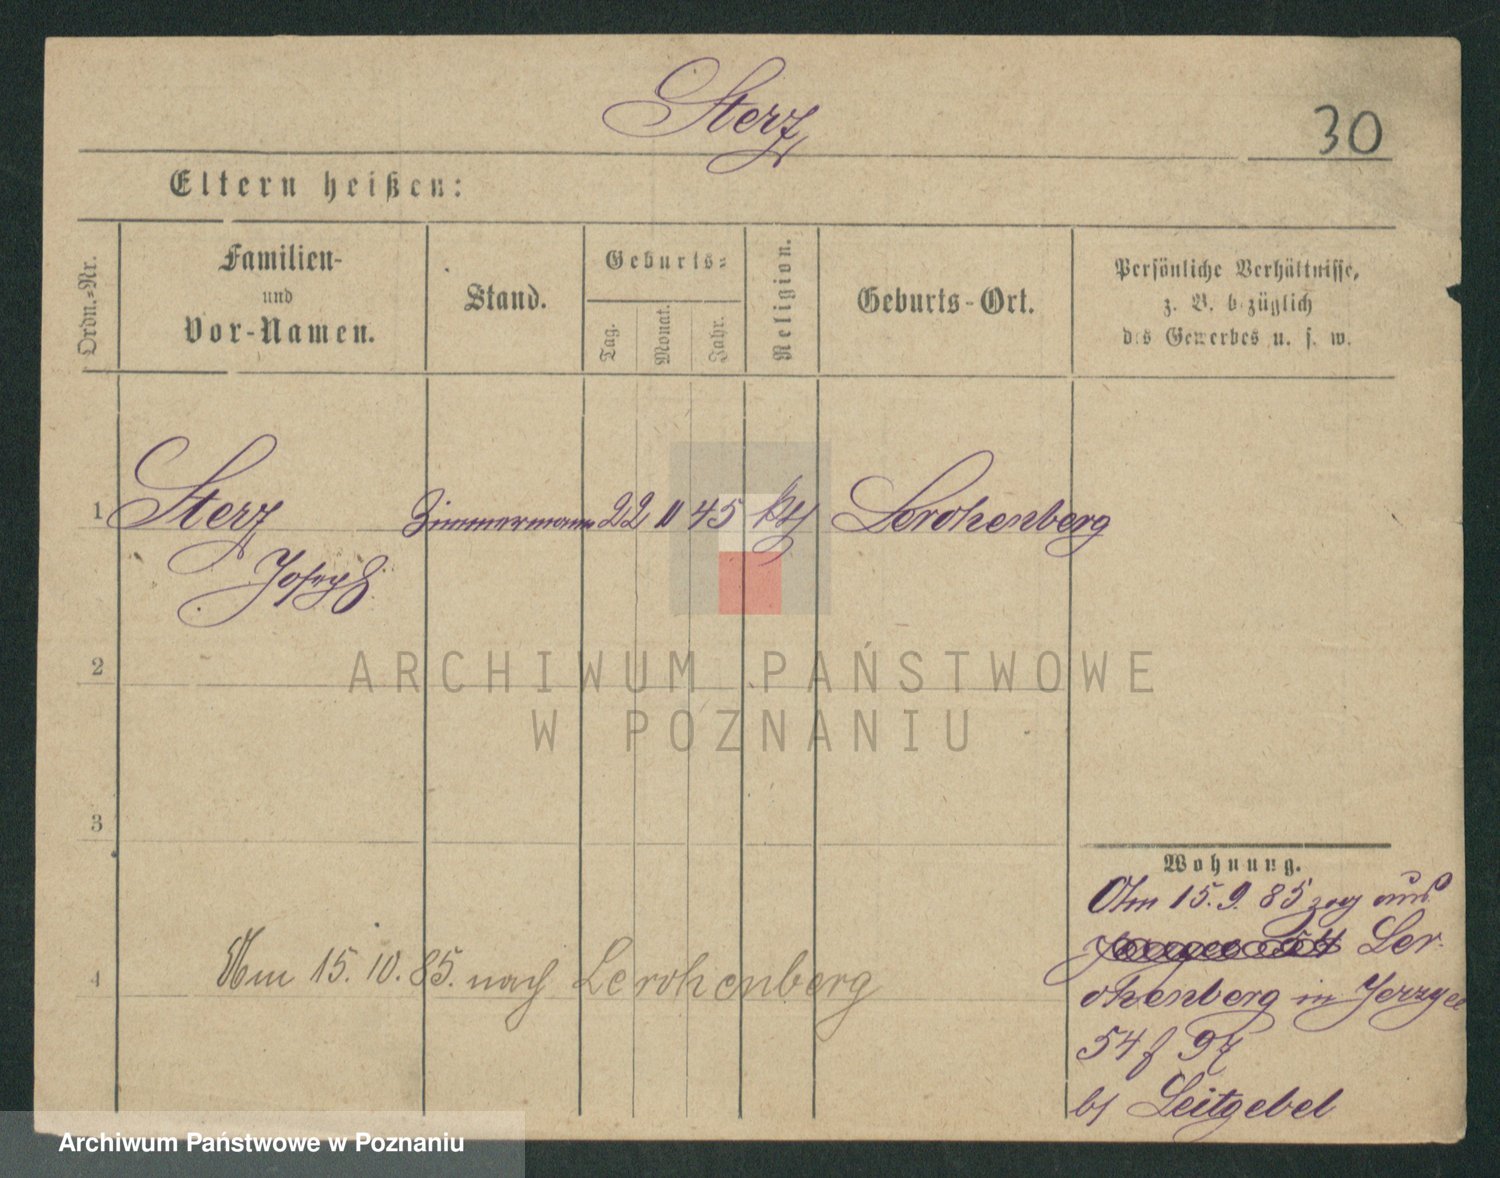 Sterz
30
Eltern heißen:
Ordn.=Nr.
Familien-
und
Vor-Namen.
Stand.
Geburts=
Tag.
Monat.
Jahr.
Religion.
Geburts-Ort.
Persönliche Verhältnisse,
z. B. bezüglich
des Gewerbes u. s. w.
1 Sterz Zimmermann 22 11 45 kth Lerchenberg
Joseph
2
ARCHIWUM PAŃSTWOWE
W POZNANIU
3
Wohnung.
Am 15. 9. 85 zog aus
Ler-
chenberg in Jerzyce
54 f 97
4 Am 15. 10. 85. nach Lerchenberg
b/ Leitgebel
Archiwum Państwowe w Poznaniu